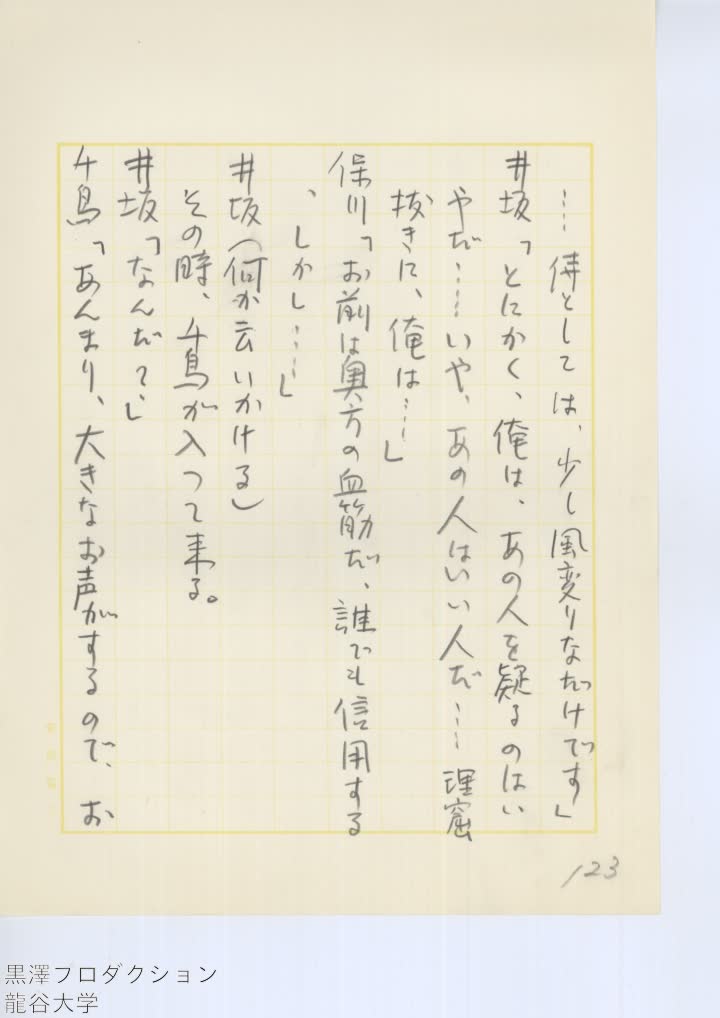 ……侍としては、少し風変りなだけです」
井坂「とにかく、俺は、あの人を疑るのはい
やだ……いや、あの人はいい人だ……理窟
抜きに、俺は……」
保川「お前は奥方の血筋だ、誰でも信用する
、しかし……」
井坂（何か云いかける）
その時、千鳥が入つて来る。
井坂「なんだ？」
千鳥「あんまり、大きなお声がするので、お
123
黒澤プロダクション
龍谷大学